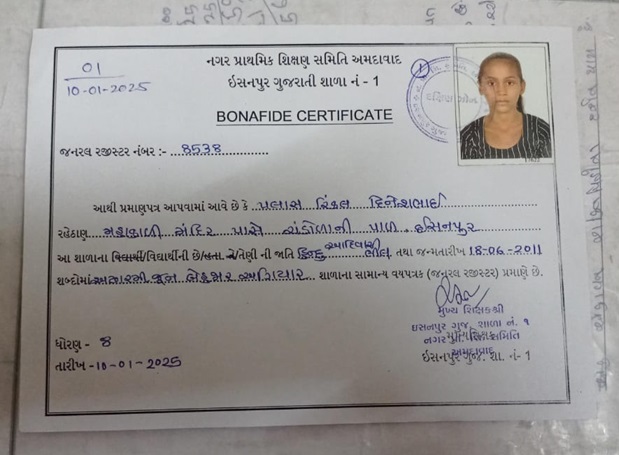 01
10-01-2025
નગર પ્રાથમિક શિક્ષણ સમિતિ અમદાવાદ
ઇસનપુર ગુજરાતી શાળા નં - 1
BONAFIDE CERTIFICATE
જનરલ રજીસ્ટર નંબર :- 8538
આથી પ્રમાણપત્ર આપવામાં આવે છે કે પલાસ દિનેશભાઈ
રહેઠાણ મહાકાળી મંદિર પાસે ચંડોળાની પાળ ઇસનપુર
આ શાળાના વિદ્યાર્થી/વિદ્યાર્થીની છે/હતા તે/તેણી ની જાતિ હિન્દુ આદિવાસી ભીલ તથા જન્મતારીખ 18-06-2011
શબ્દોમાં અઢારમી જુન બે હજાર અગિયાર શાળાના સામાન્ય વયપત્રક (જનરલ રજીસ્ટર) પ્રમાણે છે.
મુખ્ય શિક્ષકશ્રી
ઇસનપુર ગુજ. શાળા નં. ૧
નગર પ્રા. શિક્ષણ સમિતિ
અમદાવાદ
ઇસનપુર ગુજ. શા. નં- 1
ધોરણ - 8
તારીખ -10-01-2025